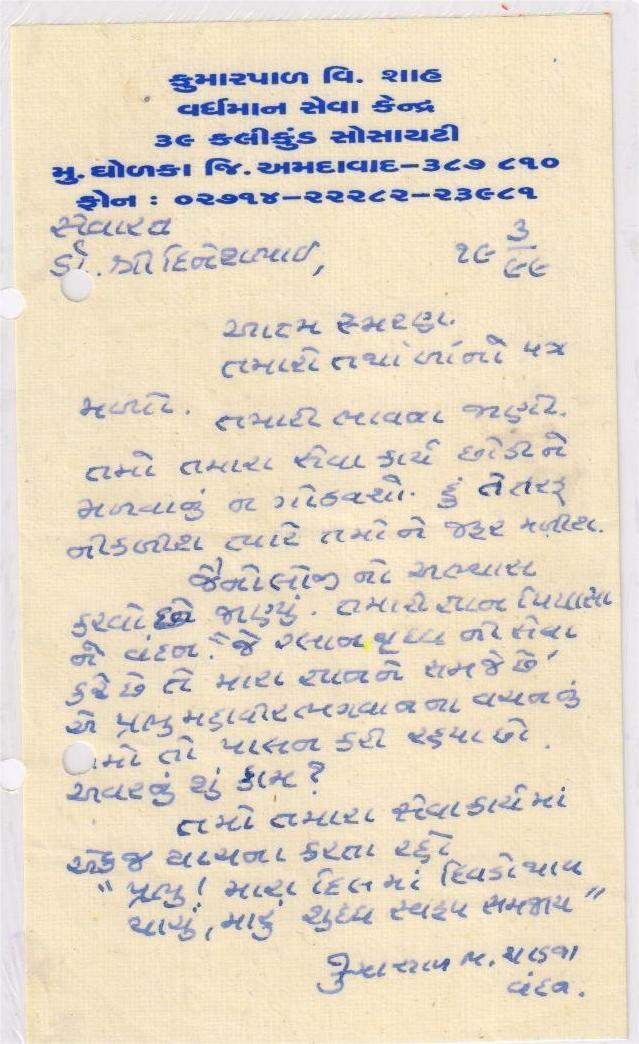 કુમારપાળ વિ. શાહ
વર્ધમાન સેવા કેન્દ્ર
૩૯ કલીકુંડ સોસાયટી
મુ. ધોળકા જિ. અમદાવાદ-૩૮૭ ૮૧૦
ફોન : ૦૨૭૧૪-૨૨૨૮૨-૨૩૯૮૧
સેવારત
ડૉ. શ્રી દિનેશભાઈ,
૧૯ ૩/૯૯
આત્મ સ્મરણ.
તમારો તથા નો પત્ર
મળ્યો.
તમારી ભાવના જાણી.
તમો તમારા સેવા કાર્ય છોડીને
મળવાનું ન ગોઠવશો. હું તે તરફ
નીકળીશ ત્યારે તમોને જરૂર મળીશ.
જૈનોલોજી નો અભ્યાસ
કરવો છે જાણ્યું. તમારી જ્ઞાન પિપાસા
ને વંદન. "જે ગ્લાન વૃદ્ધ ની સેવા
કરે છે તે મારા જ્ઞાનને સમજે છે"
એ પ્રભુ મહાવીર ભગવાનના વચનનું
તમો તો પાલન કરી રહ્યા છો.
અવરનું શું કામ?
તમો તમારા સેવાકાર્યમાં
એક જ યાચના કરતા રહો
"પ્રભુ! મારા દિલમાં દિવડો થાય
ચાહું, મારૂં શુદ્ધ સ્વરૂપ સમજાય"
કુમારપાળ વિ. શાહના
વંદન.